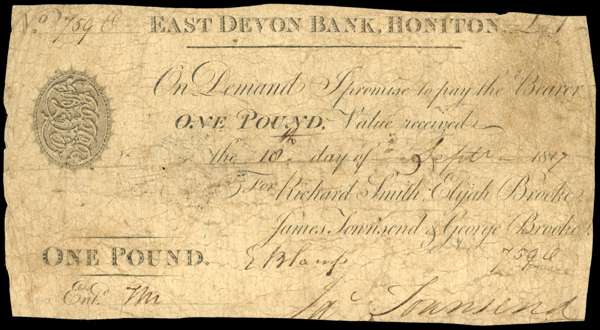 No. 7598 EAST DEVON BANK, HONITON. £1
On Demand I promise to pay the Bearer
ONE POUND. Value received
the 10th day of Septr 1817
For Richard Smith, Elijah Brooke,
James Townsend & George Brooke.
ONE POUND. 7598
Entd.
Jas. Townsend